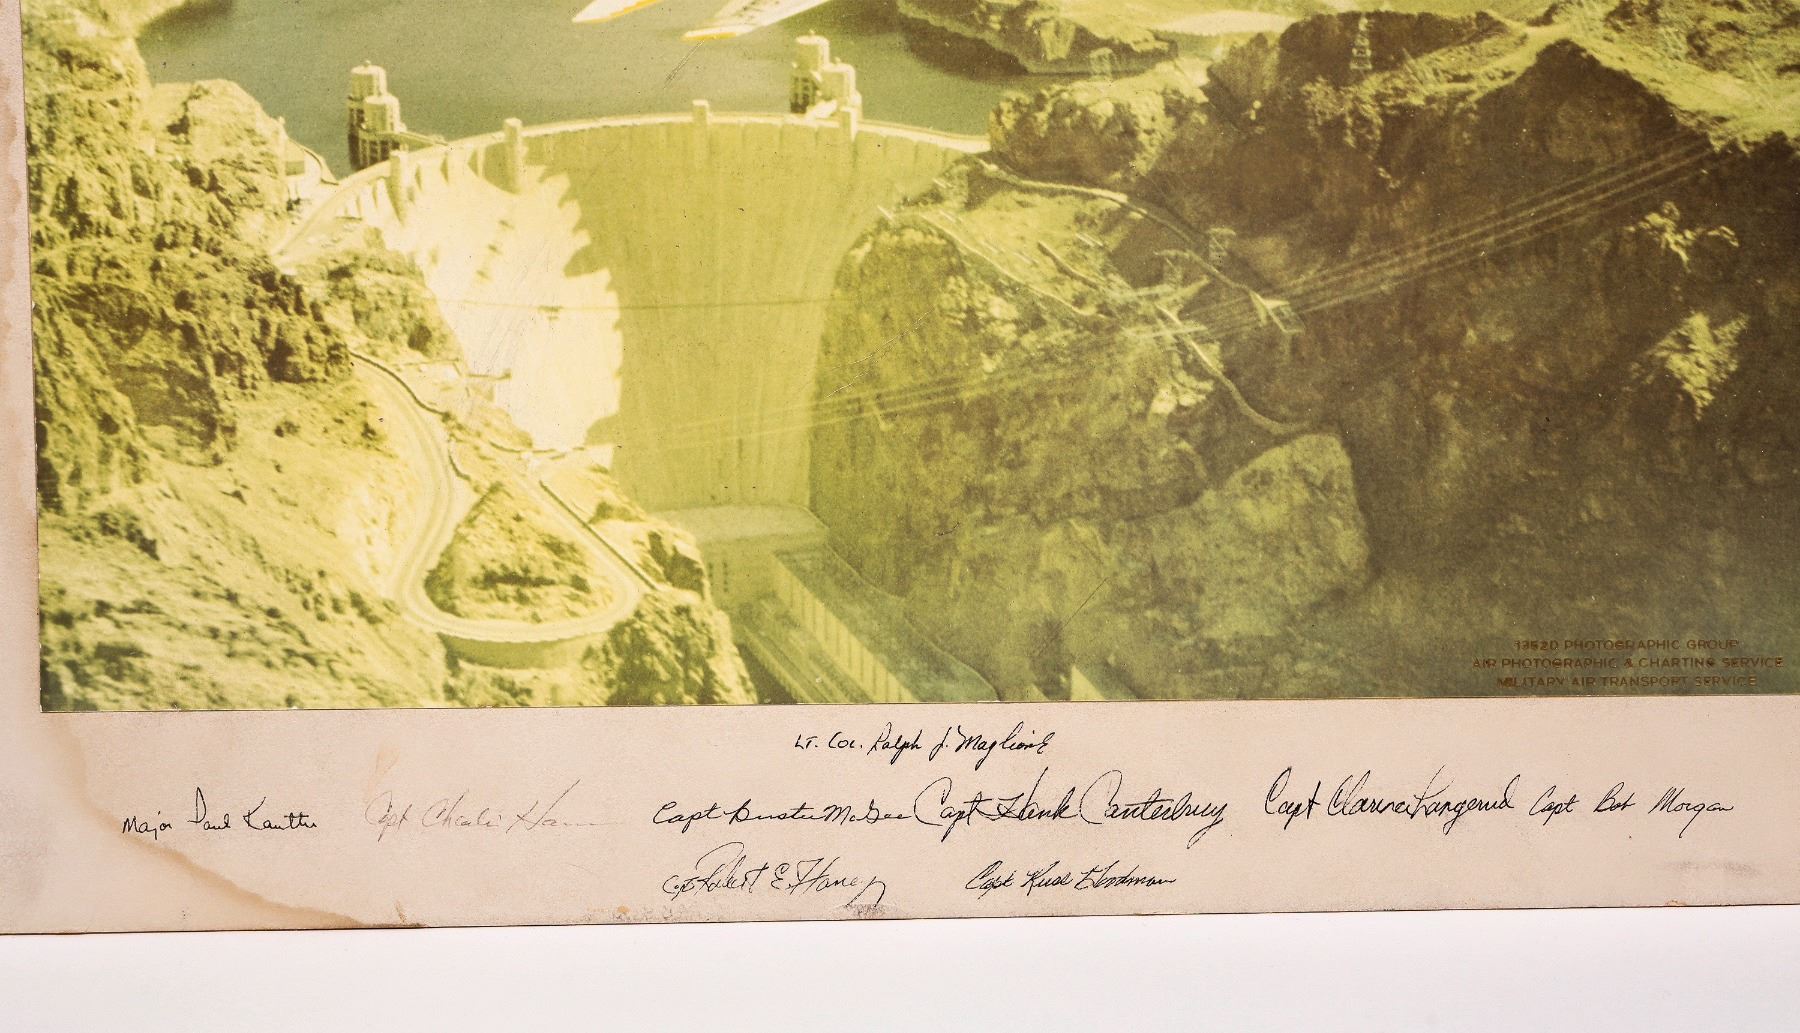 1352D PHOTOGRAPHIC GROUP
AIR PHOTOGRAPHIC & CHARTING SERVICE
MILITARY AIR TRANSPORT SERVICE
LT. COL. Ralph J. Maglione
Major Paul Kauttu Capt Buster McGee Capt Hank Canterbury Capt Clarence Langerud Capt Bob Morgan
Capt Robert E. Haney Capt Russ Goodman